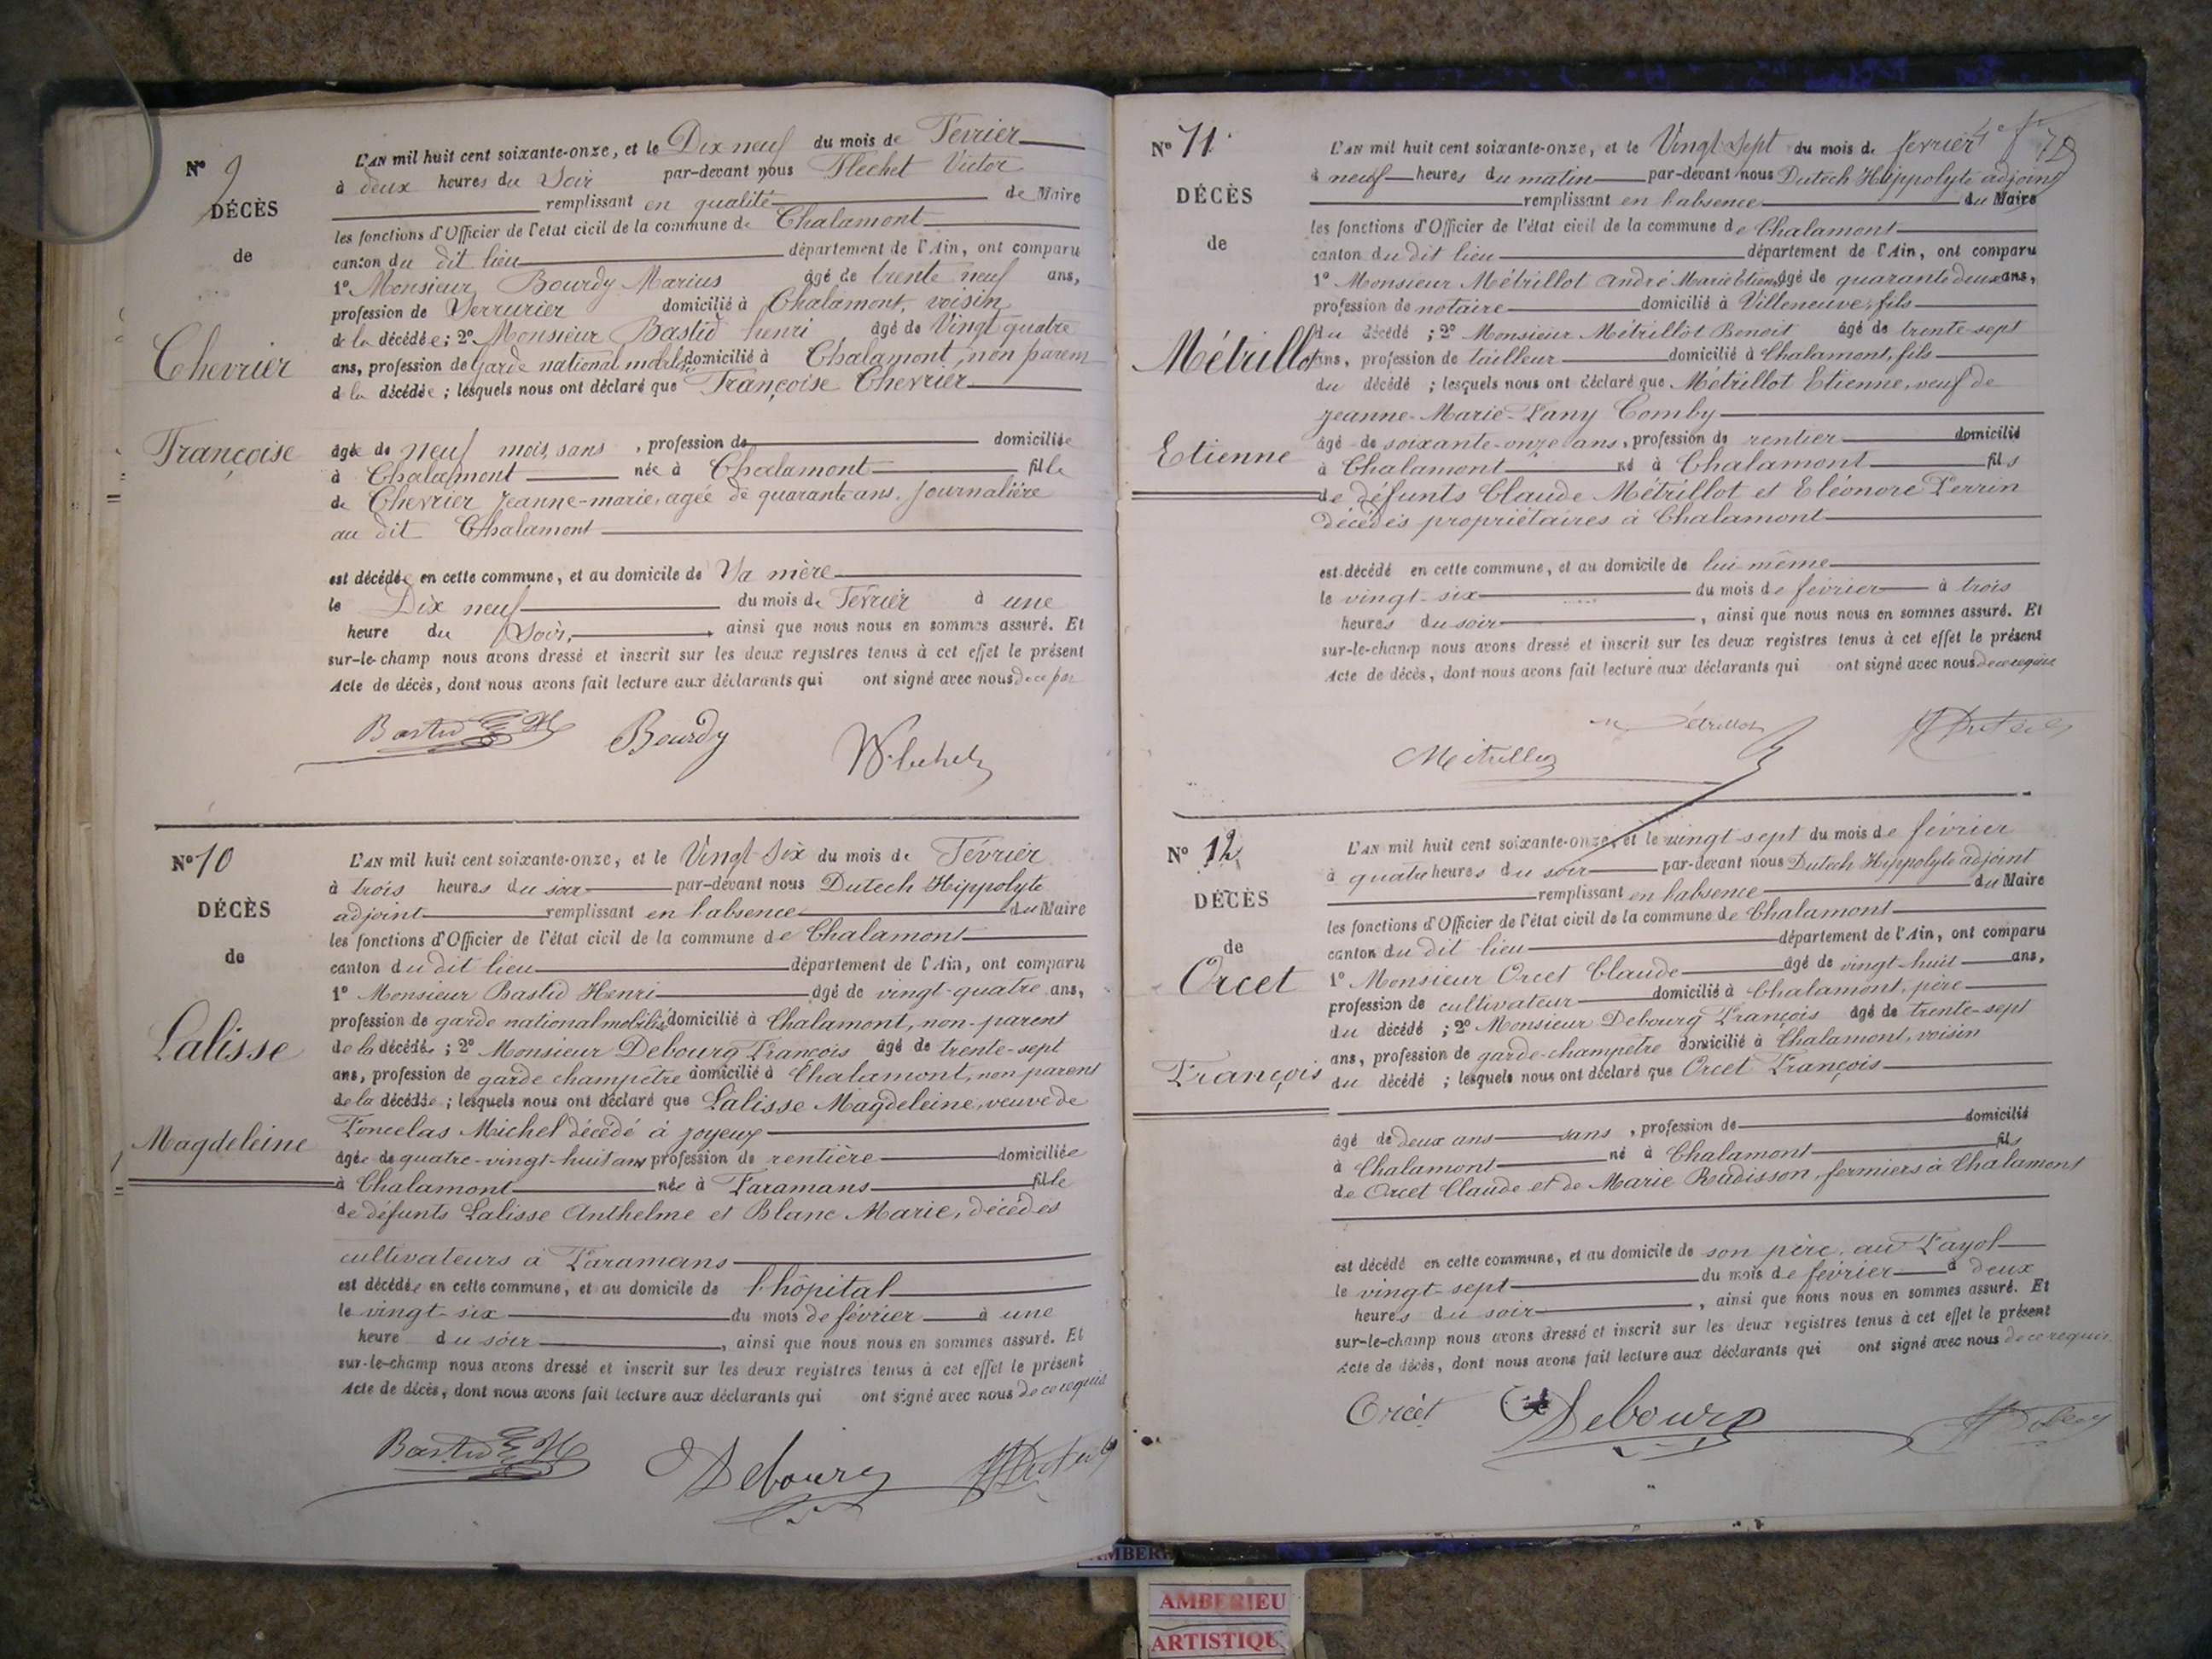 N° 9
DÉCÈS
de
Chevrier
Françoise
L'AN mil huit cent soixante-onze, et le Dix neuf du mois de Février
à deux heures du Soir par-devant nous Flechet Victor
remplissant en qualité de Maire
les fonctions d'Officier de l'état civil de la commune de Chalamont
canton du dit lieu département de l'Ain, ont comparu
1° Monsieur Bourdy Marius âgé de trente neuf ans,
profession de Serrurier domicilié à Chalamont, voisin
de la décédée; 2° Monsieur Bastid henri âgé de Vingt quatre
ans, profession de Garde national mobilisé domicilié à Chalamont, non parent
de la décédée; lesquels nous ont déclaré que Françoise Chevrier
âgée de neuf mois, sans, profession de domiciliée
à Chalamont née à Chalamont fille
de Chevrier Jeanne-marie, agée de quarante ans, Journalière
au dit Chalamont
est décédée en cette commune, et au domicile de Sa mère
le Dix neuf du mois de Février à une
heure du Soir, ainsi que nous nous en sommes assuré. Et
sur-le-champ nous avons dressé et inscrit sur les deux registres tenus à cet effet le présent
Acte de décès, dont nous avons fait lecture aux déclarants qui ont signé avec nous
Bastid E H Bourdy V. Flechet
N° 10
DÉCÈS
de
Lalisse
Magdeleine
L'AN mil huit cent soixante-onze, et le Vingt Six du mois de Février
à trois heures du soir par-devant nous Dutech Hippolyte
adjoint remplissant en l'absence du Maire
les fonctions d'Officier de l'état civil de la commune de Chalamont
canton du dit lieu département de l'Ain, ont comparu
1° Monsieur Bastid Henri âgé de vingt-quatre ans,
profession de garde national mobilisé domicilié à Chalamont, non-parent
de la décédée; 2° Monsieur Debourg François âgé de trente-sept
ans, profession de garde champêtre domicilié à Chalamont, non parent
de la décédée; lesquels nous ont déclaré que Lalisse Magdeleine, veuve de
Foncelas Michel décédé à Joyeux
âgée de quatre-vingt-huit ans profession de rentière domiciliée
à Chalamont née à Faramans fille
de défunts Lalisse Anthelme et Blanc Marie, décédés
cultivateurs à Faramans
est décédée en cette commune, et au domicile de l'hôpital
le vingt-six du mois de février à une
heure du soir, ainsi que nous nous en sommes assuré. Et
sur-le-champ nous avons dressé et inscrit sur les deux registres tenus à cet effet le présent
Acte de décès, dont nous avons fait lecture aux déclarants qui ont signé avec nous de ce requis
Bastid E H Debourg H Dutech
N° 11
DÉCÈS
de
Métrillot
Etienne
L'AN mil huit cent soixante-onze, et le Vingt Sept du mois de fevrier
à neuf heures du matin par-devant nous Dutech Hippolyte adjoint
remplissant en l'absence du Maire
les fonctions d'Officier de l'état civil de la commune de Chalamont
canton du dit lieu département de l'Ain, ont comparu
1° Monsieur Métrillot André Marie Etienne âgé de quarante deux ans,
profession de notaire domicilié à Villeneuve, fils
du décédé; 2° Monsieur Métrillot Benoit âgé de trente-sept
ans, profession de tailleur domicilié à Chalamont, fils
du décédé; lesquels nous ont déclaré que Métrillot Etienne, veuf de
Jeanne-Marie-Fany Comby
âgé de soixante-onze ans, profession de rentier domicilié
à Chalamont né à Chalamont fils
de défunts Claude Métrillot et Eléonore Perrin
décédés propriétaires à Chalamont
est décédé en cette commune, et au domicile de lui même
le vingt-six du mois de février à trois
heures du soir, ainsi que nous nous en sommes assuré. Et
sur-le-champ nous avons dressé et inscrit sur les deux registres tenus à cet effet le présent
Acte de décès, dont nous avons fait lecture aux déclarants qui ont signé avec nous de ce requis
Métrillot Métrillot H Dutech
N° 12
DÉCÈS
de
Orcet
François
L'AN mil huit cent soixante-onze, et le vingt-sept du mois de février
à quatre heures du soir par-devant nous Dutech Hippolyte adjoint
remplissant en l'absence du Maire
les fonctions d'Officier de l'état civil de la commune de Chalamont
canton du dit lieu département de l'Ain, ont comparu
1° Monsieur Orcet Claude âgé de vingt-huit ans,
profession de cultivateur domicilié à Chalamont, père
du décédé; 2° Monsieur Debourg François âgé de trente-sept
ans, profession de garde-champetre domicilié à Chalamont, voisin
du décédé; lesquels nous ont déclaré que Orcet François
âgé de deux ans sans, profession de domicilié
à Chalamont né à Chalamont fils
de Orcet Claude et de Marie Radisson, fermiers à Chalamont
est décédé en cette commune, et au domicile de son père, au Fayol
le vingt-sept du mois de février à deux
heures du soir, ainsi que nous nous en sommes assuré. Et
sur-le-champ nous avons dressé et inscrit sur les deux registres tenus à cet effet le présent
Acte de décès, dont nous avons fait lecture aux déclarants qui ont signé avec nous de ce requis
Orcet Debourg H Dutech
AMBERIEU
ARTISTIQU